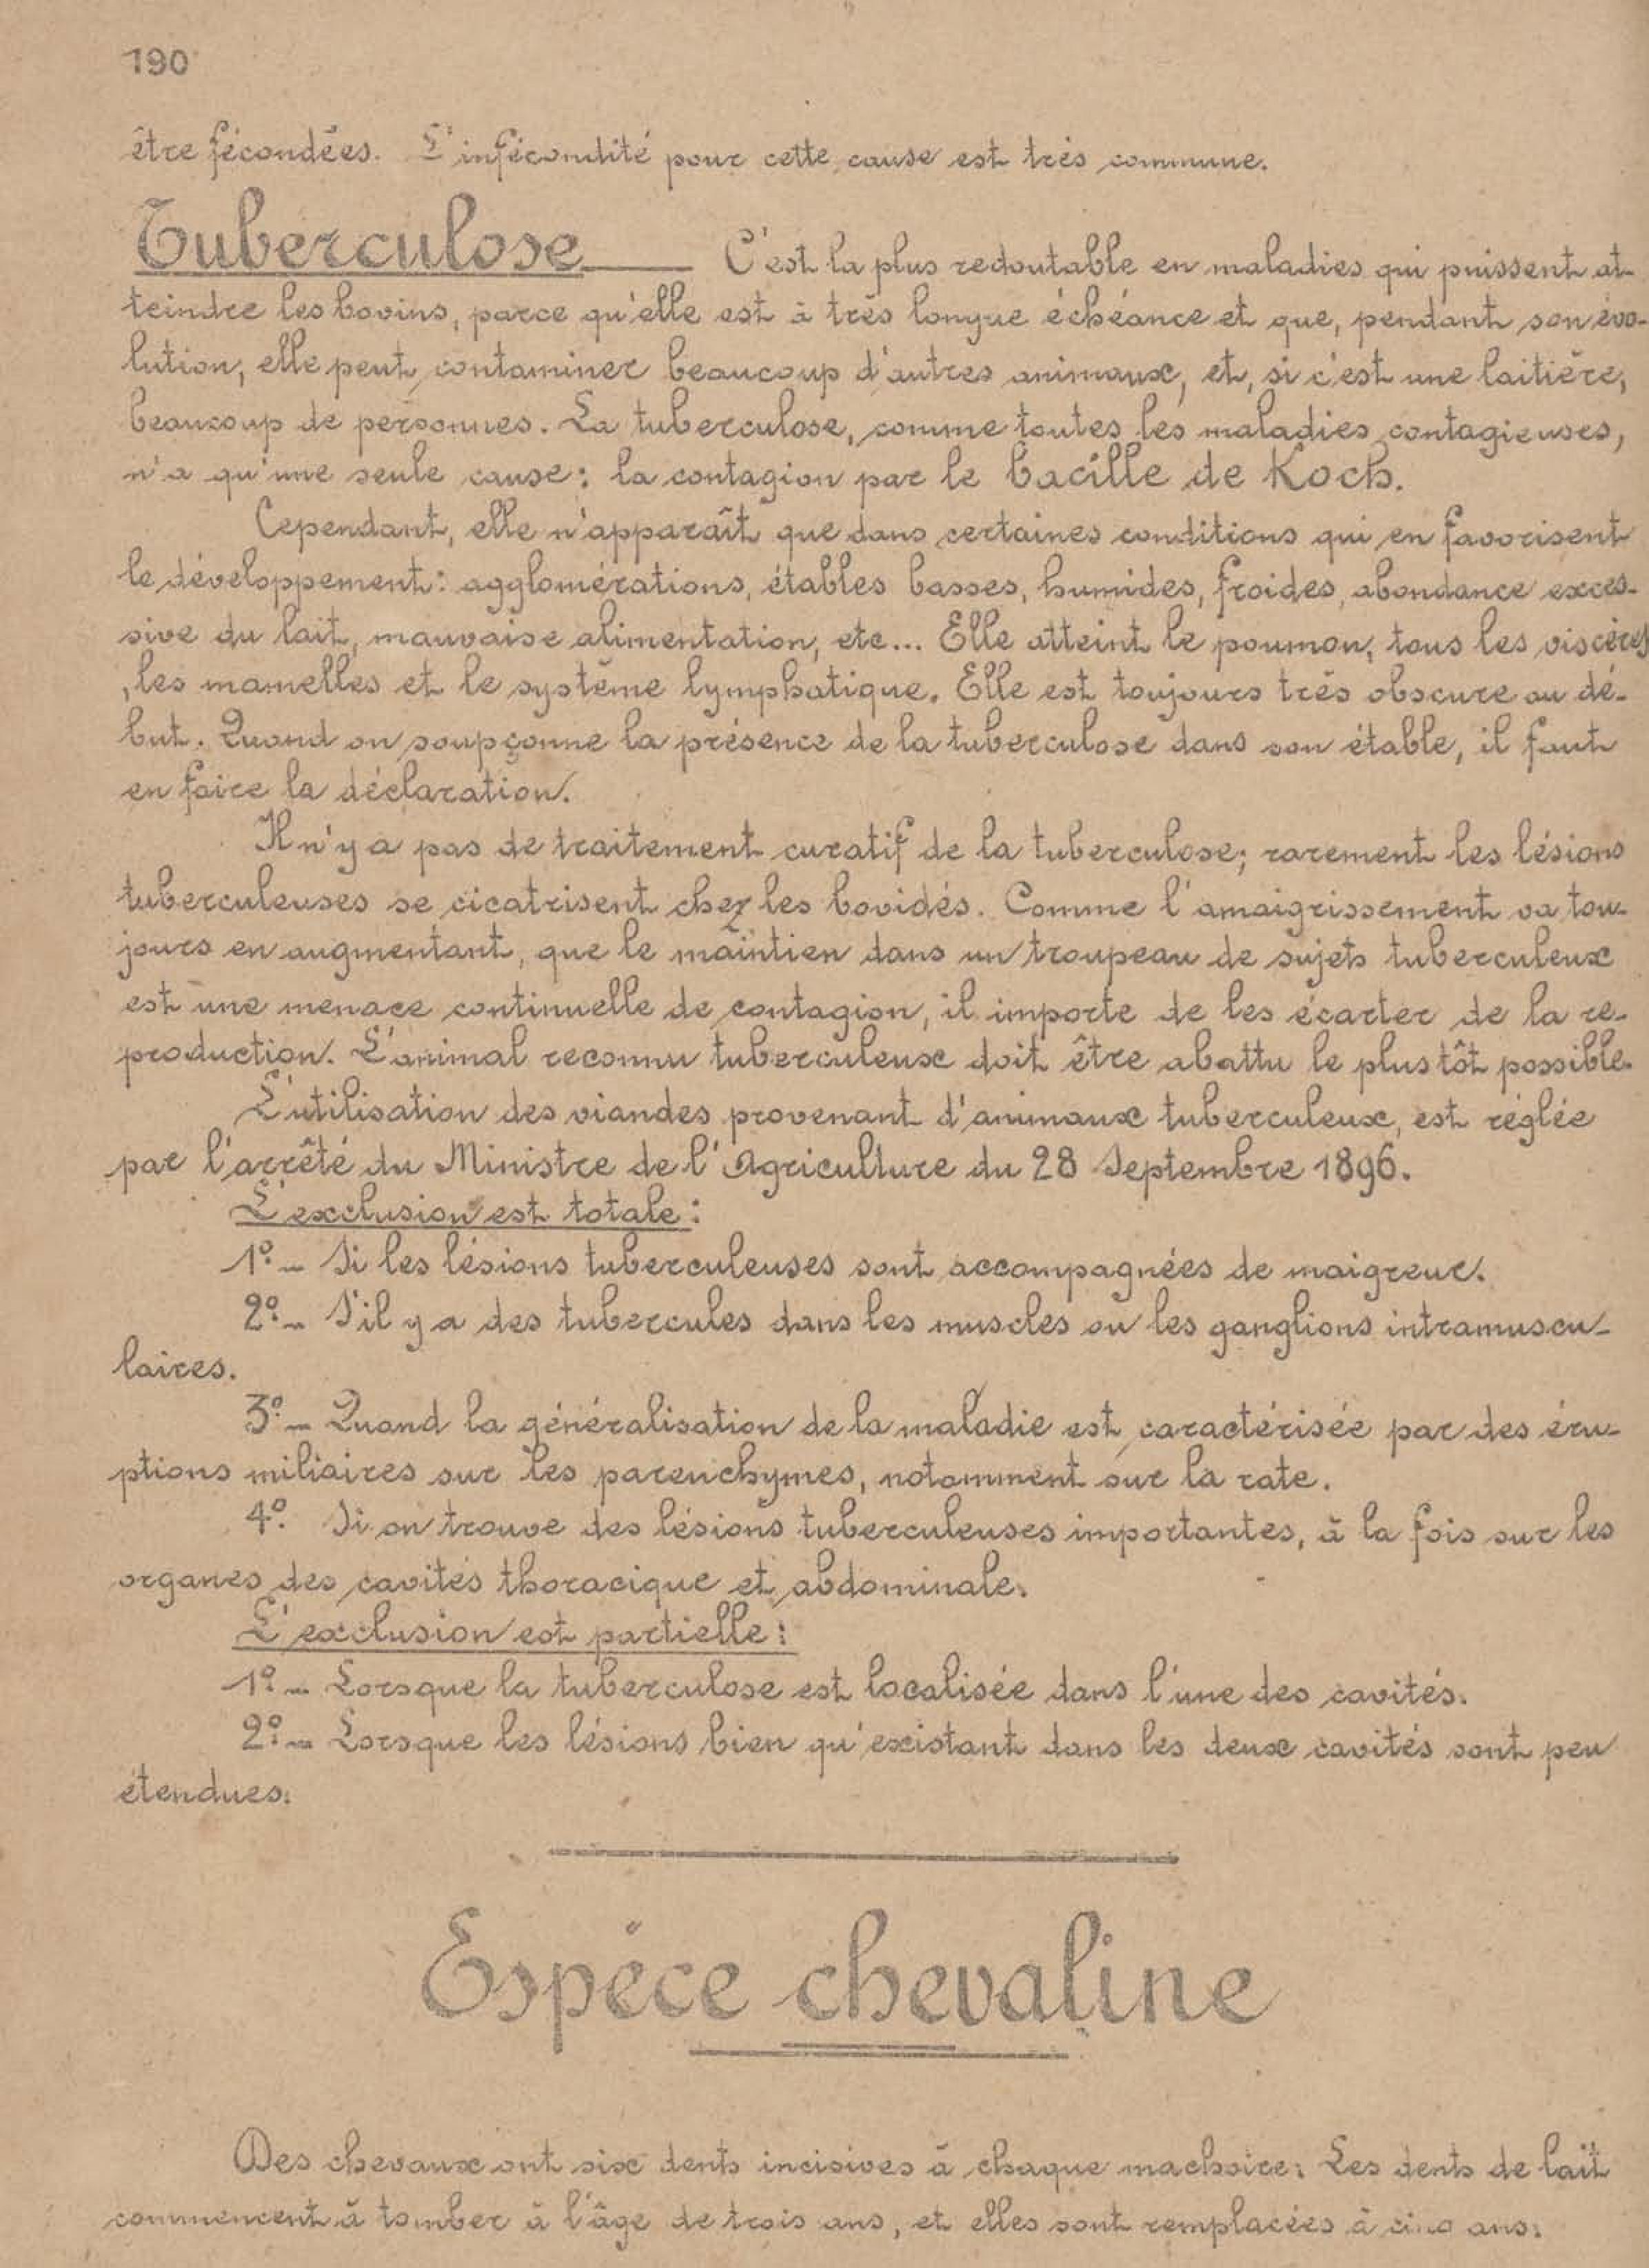 190
être fécondées. L'infécondité pour cette cause est très commune.
Tuberculose C'est la plus redoutable en maladies qui puissent at-
teindre les bovins, parce qu'elle est à très longue échéance et que, pendant son évo-
lution, elle peut contaminer beaucoup d'autres animaux, et, si c'est une laitière,
beaucoup de personnes. La tuberculose, comme toutes les maladies contagieuses,
n'a qu'une seule cause: la contagion par le bacille de Koch.
Cependant, elle n'apparaît que dans certaines conditions qui en favorisent
le développement: agglomérations, étables basses, humides, froides, abondance exces-
sive du lait, mauvaise alimentation, etc... Elle atteint le poumon, tous les viscères
, les mamelles et le système lymphatique. Elle est toujours très obscure au dé-
but. Quand on soupçonne la présence de la tuberculose dans son étable, il faut
en faire la déclaration.
Il n'y a pas de traitement curatif de la tuberculose; rarement les lésions
tuberculeuses se cicatrisent chez les bovidés. Comme l'amaigrissement va tou-
jours en augmentant, que le maintien dans un troupeau de sujets tuberculeux
est une menace continuelle de contagion, il importe de les écarter de la re-
production. L'animal reconnu tuberculeux doit être abattu le plus tôt possible.
L'utilisation des viandes provenant d'animaux tuberculeux, est réglée
par l'arrêté du Ministre de l'Agriculture du 28 Septembre 1896.
L'exclusion est totale:
1º.- Si les lésions tuberculeuses sont accompagnées de maigreur.
2º.- S'il y a des tubercules dans les muscles ou les ganglions intramuscu-
laires.
3º.- Quand la généralisation de la maladie est caractérisée par des éru-
ptions miliaires sur les parenchymes, notamment sur la rate.
4º. Si on trouve des lésions tuberculeuses importantes, à la fois sur les
organes des cavités thoracique et abdominale.
L'exclusion est partielle:
1º.- Lorsque la tuberculose est localisée dans l'une des cavités.
2º.- Lorsque les lésions bien qu'existant dans les deux cavités sont peu
étendues.
Espéce chevaline
Des chevaux ont six dents incisives à chaque machoire. Les dents de lait
commencent à tomber à l'âge de trois ans, et elles sont remplacées à cinq ans.